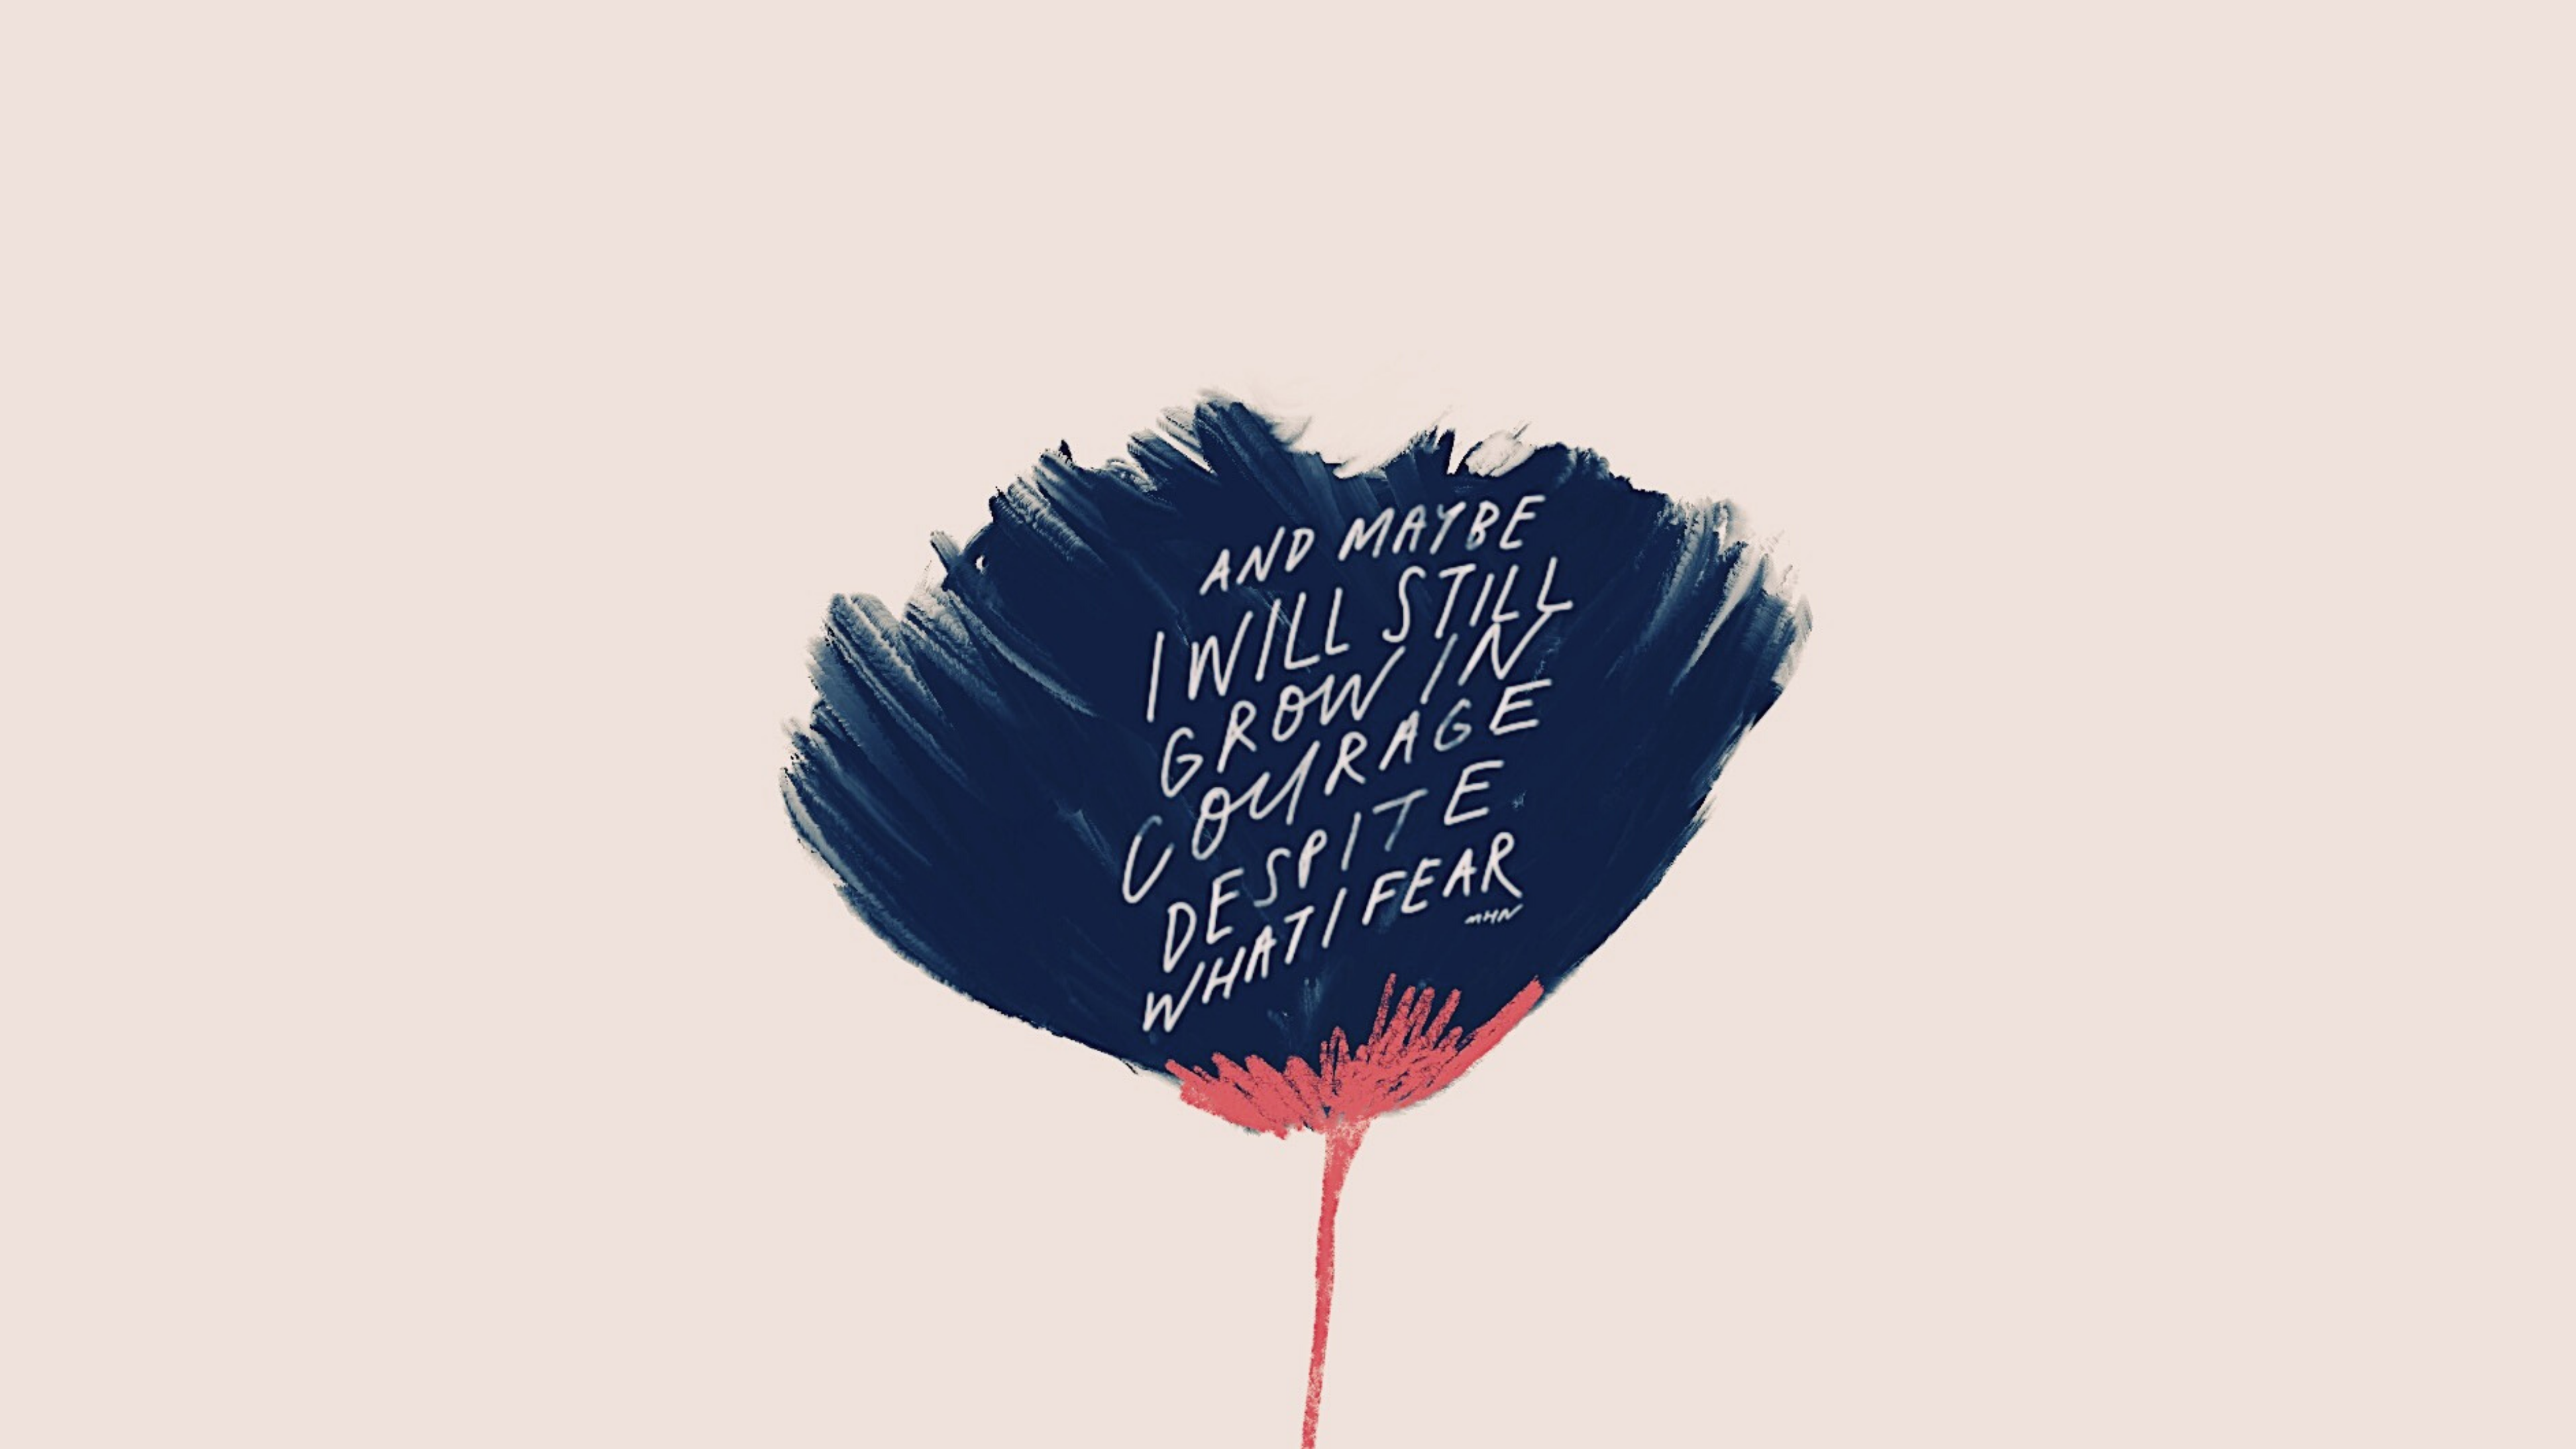 AND MAYBE
I WILL STILL
GROW IN
COURAGE
DESPITE
WHAT I FEAR
MHN